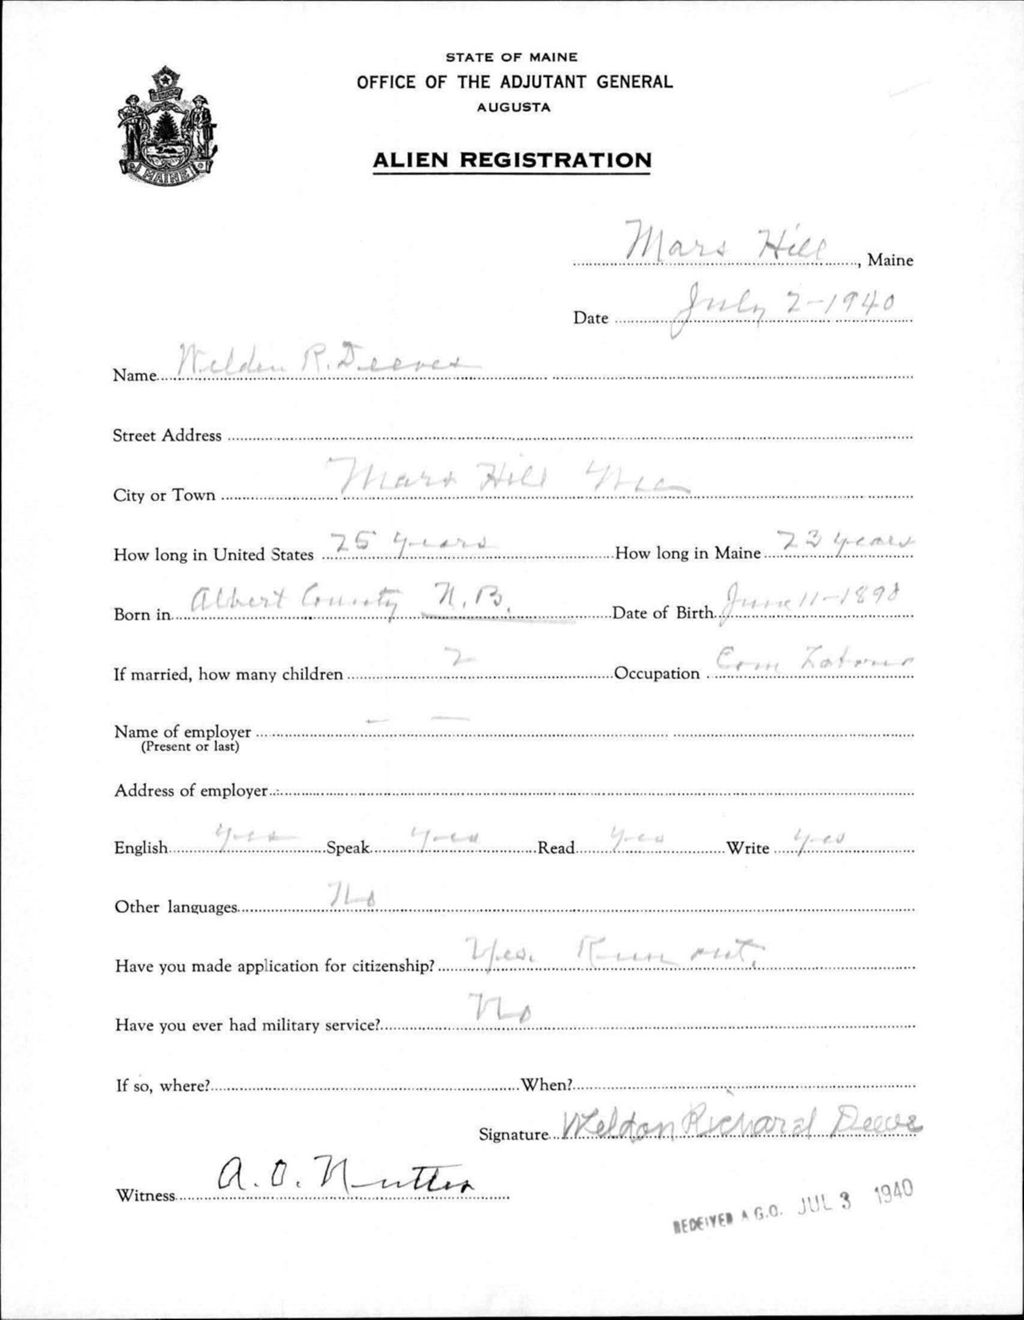 STATE OF MAINE
OFFICE OF THE ADJUTANT GENERAL
AUGUSTA
ALIEN REGISTRATION
MAINE
Mars Hill, Maine
Date July 2-1940
Name Weldon R. Deeves
Street Address
City or Town Mars Hill Me
How long in United States 25 years How long in Maine 23 years
Born in Albert County N.B. Date of Birth June 11-1898
If married, how many children 2 Occupation Com Laborer
Name of employer — —
(Present or last)
Address of employer
English yes Speak yes Read yes Write yes
Other languages No
Have you made application for citizenship? Yes. Run out.
Have you ever had military service? No
If so, where? When?
Signature Weldon Richard Deeves
Witness A. O. Nutter
RECEIVED A.G.O. JUL 3 1940